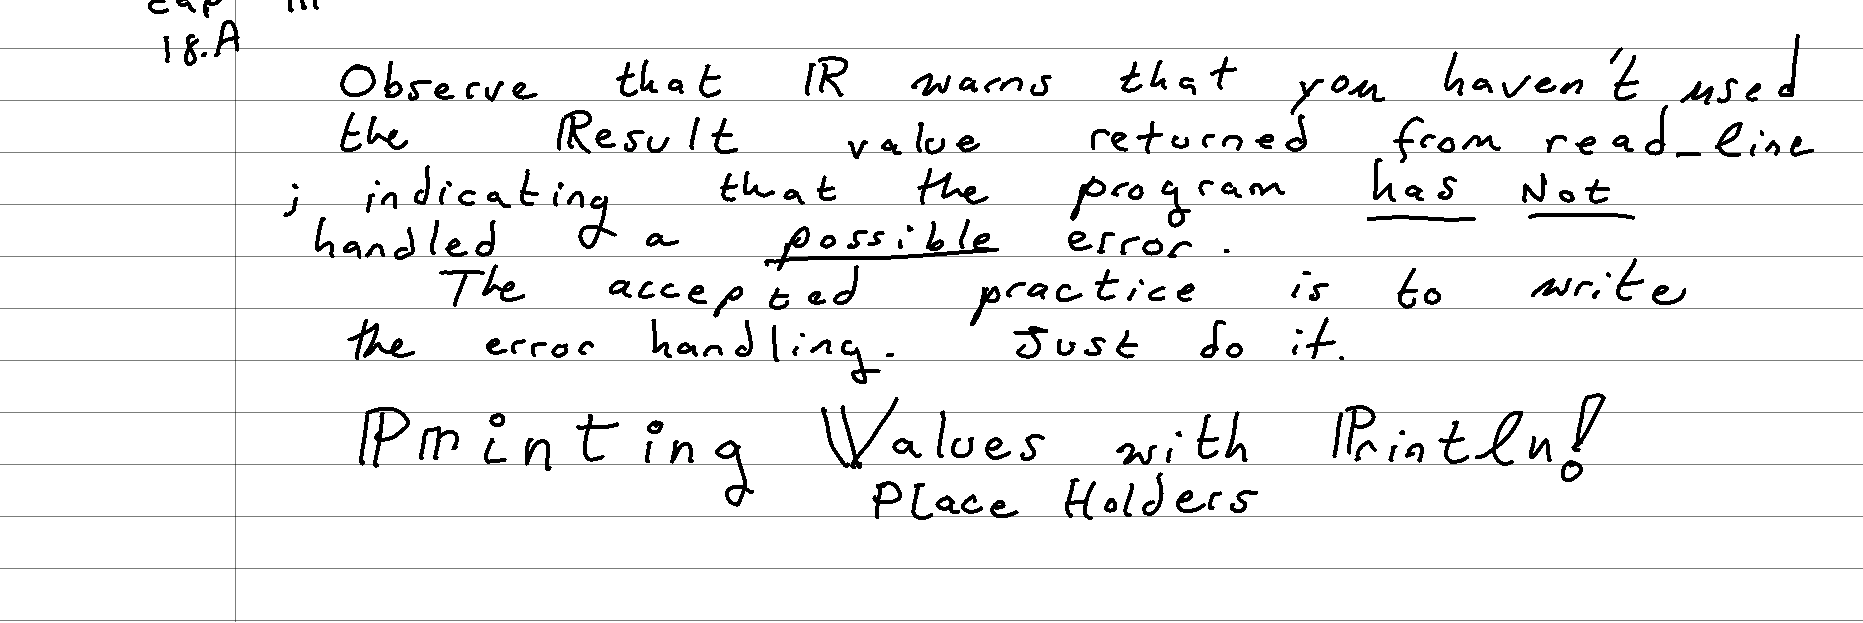 cap III
18.A
Observe that ℝ warns that you haven't used
the ℝesult value returned from read_line
; indicating that the program has Not
handled a possible error.
The accepted practice is to write
the error handling. Just do it.
Printing Values with Println!
Place Holders